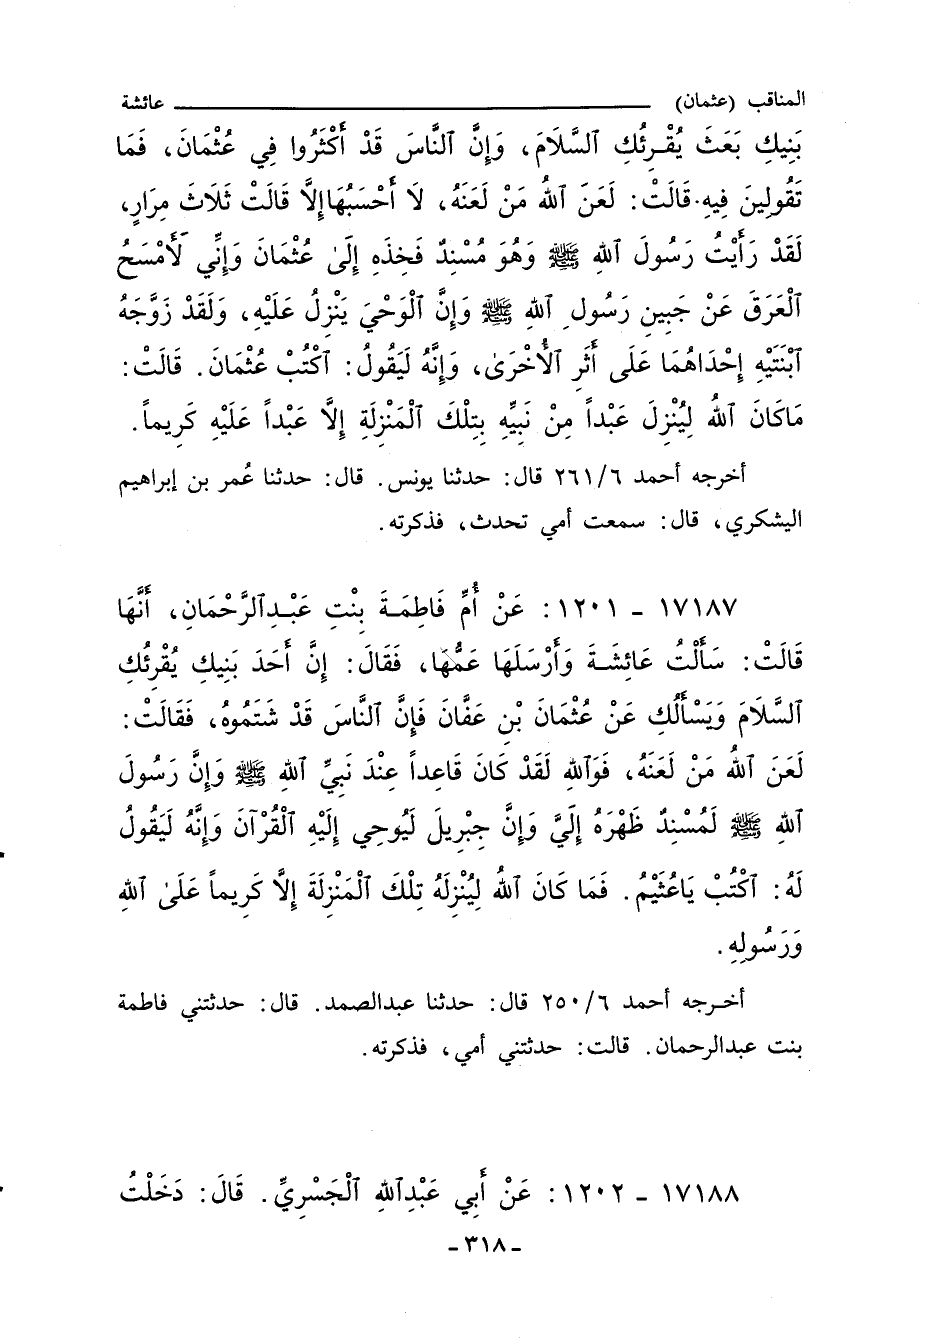 المناقب (عثمان) ــــــــــــــــــــــــــــــ عائشة
بَنِيكِ بَعَثَ يُقْرِئُكِ ٱلسَّلَامَ، وَإِنَّ ٱلنَّاسَ قَدْ أَكْثَرُوا فِي عُثْمَانَ، فَمَا
تَقُولِينَ فِيهِ. قَالَتْ: لَعَنَ ٱللهُ مَنْ لَعَنَهُ، لَا أَحْسَبُهَا إِلَّا قَالَتْ ثَلَاثَ مِرَارٍ،
لَقَدْ رَأَيْتُ رَسُولَ ٱللهِ ﷺ وَهُوَ مُسْنِدٌ فَخِذَهِ إِلىٰ عُثْمَانَ وَإِنِّي لَأَمْسَحُ
ٱلْعَرَقَ عَنْ جَبِينِ رَسُولِ ٱللهِ ﷺ وَإِنَّ ٱلْوَحْيَ يَنْزِلُ عَلَيْهِ، وَلَقَدْ زَوَّجَهُ
ٱبْنَتَيْهِ إِحْدَاهُمَا عَلَى أَثَرِ ٱلْأُخْرَىٰ، وَإِنَّهُ لَيَقُولُ: ٱكْتُبْ عُثْمَانَ. قَالَتْ:
مَاكَانَ ٱللهُ لِيُنْزِلَ عَبْداً مِنْ نَبِيِّهِ بِتِلْكَ ٱلْمَنْزِلَةِ إِلَّا عَبْداً عَلَيْهِ كَرِيماً.
أخرجه أحمد ٢٦١/٦ قال: حدثنا يونس. قال: حدثنا عُمر بن إبراهيم
اليشكري، قال: سمعت أمي تحدث، فذكرته.
١٧١٨٧ - ١٢٠١: عَنْ أُمِّ فَاطِمَةَ بِنْتِ عَبْدِٱلرَّحْمَانِ، أَنَّهَا
قَالَتْ: سَأَلْتُ عَائِشَةَ وَأَرْسَلَهَا عَمُّهَا، فَقَالَ: إِنَّ أَحَدَ بَنِيكِ يُقْرِئُكِ
ٱلسَّلَامَ وَيَسْأَلُكِ عَنْ عُثْمَانَ بْنِ عَفَّانَ فَإِنَّ ٱلنَّاسَ قَدْ شَتَمُوهُ، فَقَالَتْ:
لَعَنَ ٱللهُ مَنْ لَعَنَهُ، فَوَٱللهِ لَقَدْ كَانَ قَاعِداً عِنْدَ نَبِيِّ ٱللهِ ﷺ وَإِنَّ رَسُولَ
ٱللهِ ﷺ لَمُسْنِدٌ ظَهْرَهُ إِلَيَّ وَإِنَّ جِبْرِيلَ لَيُوحِي إِلَيْهِ ٱلْقُرْآنَ وَإِنَّهُ لَيَقُولُ
لَهُ: ٱكْتُبْ يَاعُثَيْمُ. فَمَا كَانَ ٱللهُ لِيُنْزِلَهُ تِلْكَ ٱلْمَنْزِلَةَ إِلَّا كَرِيماً عَلَىٰ ٱللهِ
وَرَسُولِهِ.
أخرجه أحمد ٢٥٠/٦ قال: حدثنا عبدالصمد. قال: حدثتني فاطمة
بنت عبدالرحمان. قالت: حدثتني أمي، فذكرته.
١٧١٨٨ - ١٢٠٢: عَنْ أَبِي عَبْدِٱللهِ ٱلْجَسْرِيِّ. قَالَ: دَخَلْتُ
- ٣١٨ -